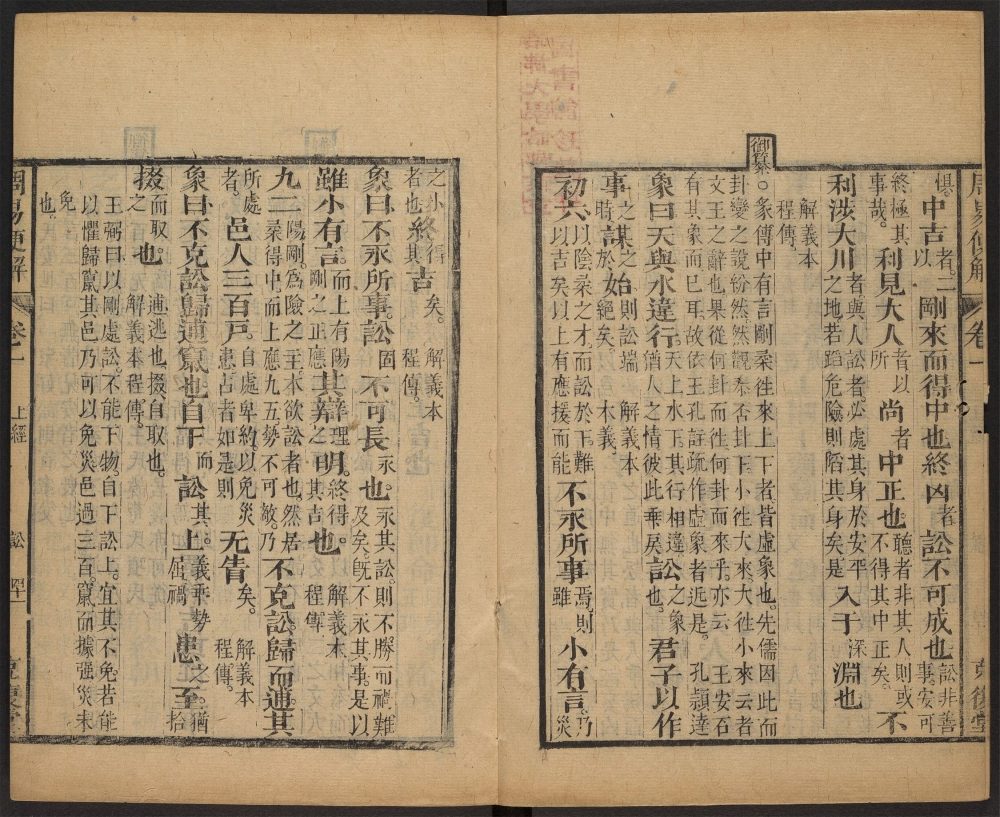 周易便解
卷一
懼中吉者二以剛來而得中也終凶者訟不可成也訟非善事安可
終極其事哉利見大人者以所尚者中正也聽者非其人則或不得其中正矣不
利涉大川者與人訟者必處其身於安平之地若蹈危險則陷其身矣是入于深淵也
解義本
程傳
御纂。彖傳中有言剛柔往來上下者皆虛象也先儒因此而
卦變之說紛然然觀泰否卦下小往大來大往小來云者
文王之辭也果從何卦而往何卦而來乎亦云王安石
有其象而已耳故依王孔註疏作虛象者近是孔穎達
象曰天與水違行天上水下其行相違之象猶人之情彼此乖戾訟也君子以作
事之時謀之於始則訟端絕矣解義本
木義
初六以陰柔之才而訟於下難以吉矣以上有應援而能不永所事焉則雖小有言乃災
之小者也終得其吉矣解義本
程傳
象曰不永所事訟固不可長永也永其訟則不勝而禍難及矣旣不永其事是以
雖小有言而上有陽剛之正應其辯理之明終得其吉也解義本
程傳
九二陽剛爲險之主本欲訟者也然居柔得中而上應九五勢不可敵乃不克訟歸而逋其
所處者邑人三百戶自處卑約以免災患占者如是則无眚矣解義本
程傳
象曰不克訟歸逋竄也自下而訟其上義乖勢屈禍患之至猶拾
掇而取之也逋逃也掇自取也
解義本程傳
王弼曰以剛處訟不能下物自下訟上宜其不免若能
以懼歸竄其邑乃可以免災邑過三百竄而據强災未
免也
周易便解
卷一
上經
訟